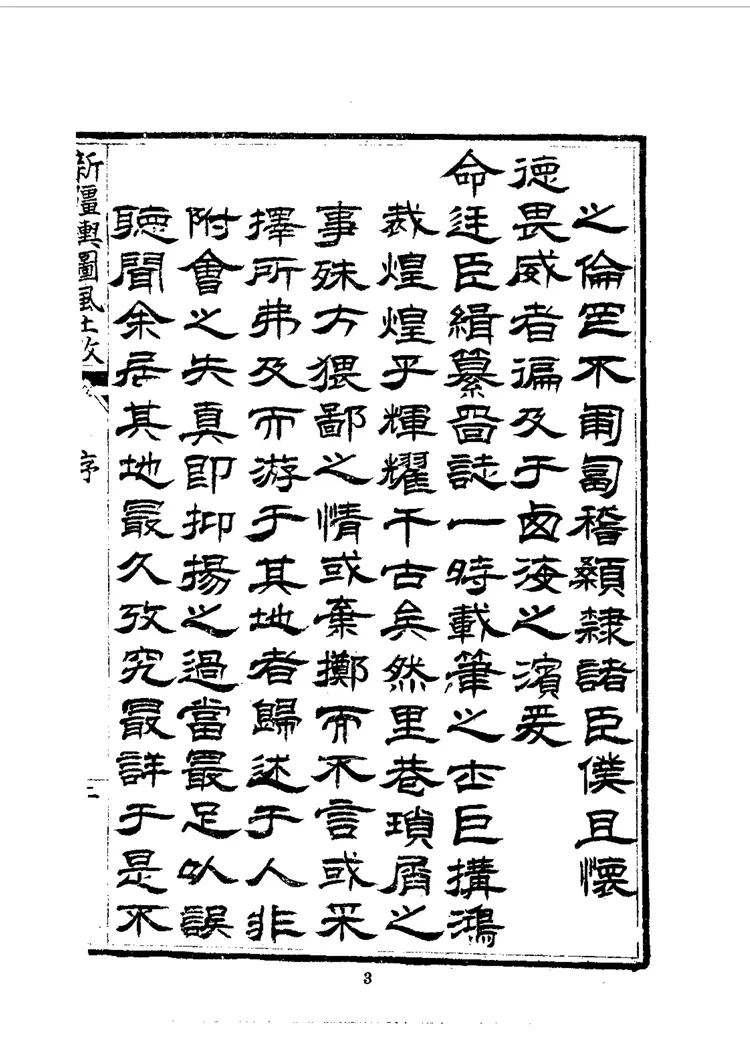 之倫罔不匍匐稽顙隸諸臣僕且懷
德畏威者遍及于鹵海之濱爰
命廷臣緝纂啚誌一時載筆之士巨搆鴻
裁煌煌乎輝耀千古矣然里巷瑣屑之
事殊方猥鄙之情或棄擲而不言或采
擇所弗及而游于其地者歸述于人非
附會之失真即抑揚之過當最足以誤
聽聞余居其地最久攷究最詳于是不
新疆輿圖風土攷
序
二
3